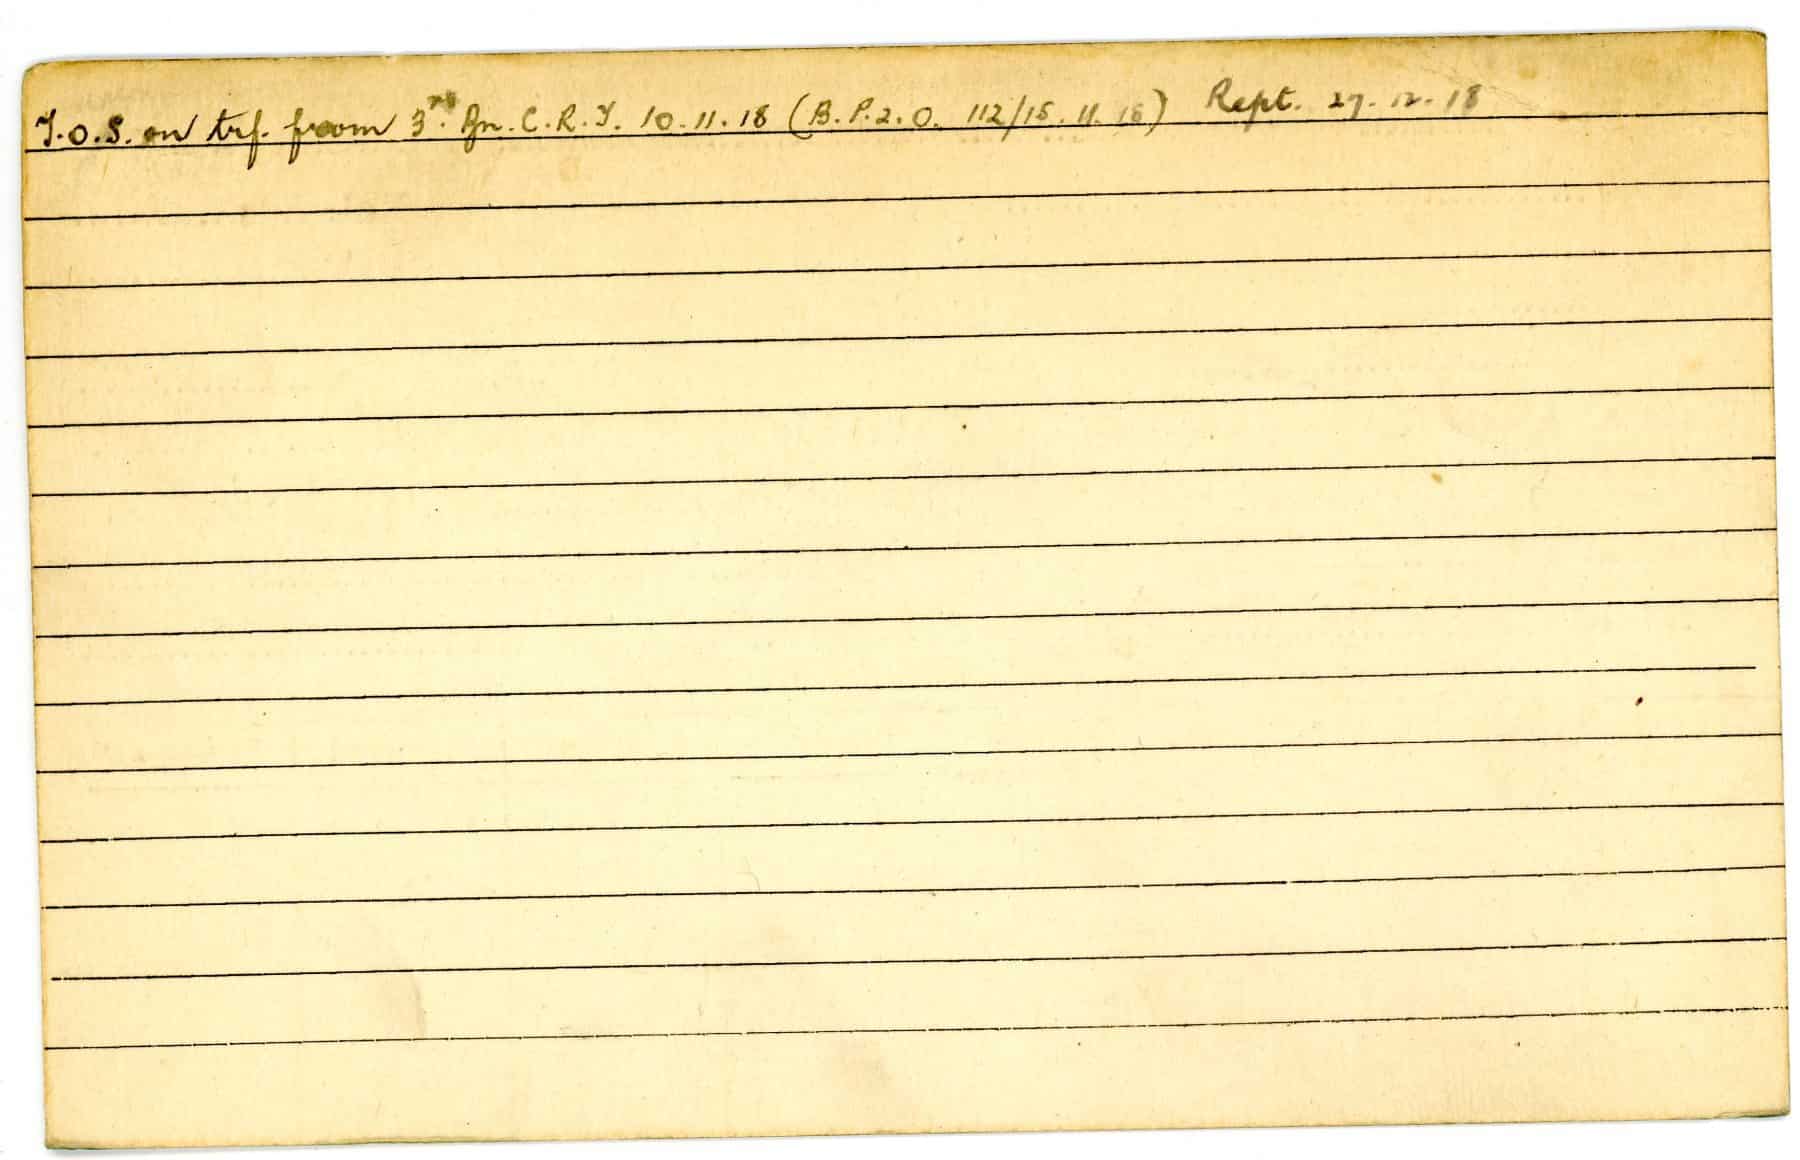 T.O.S. on trf. from 3rd. Bn. C.R.T. 10.11.18 (B.P.2.O. 112/15.11.18) Rept. 27.12.18